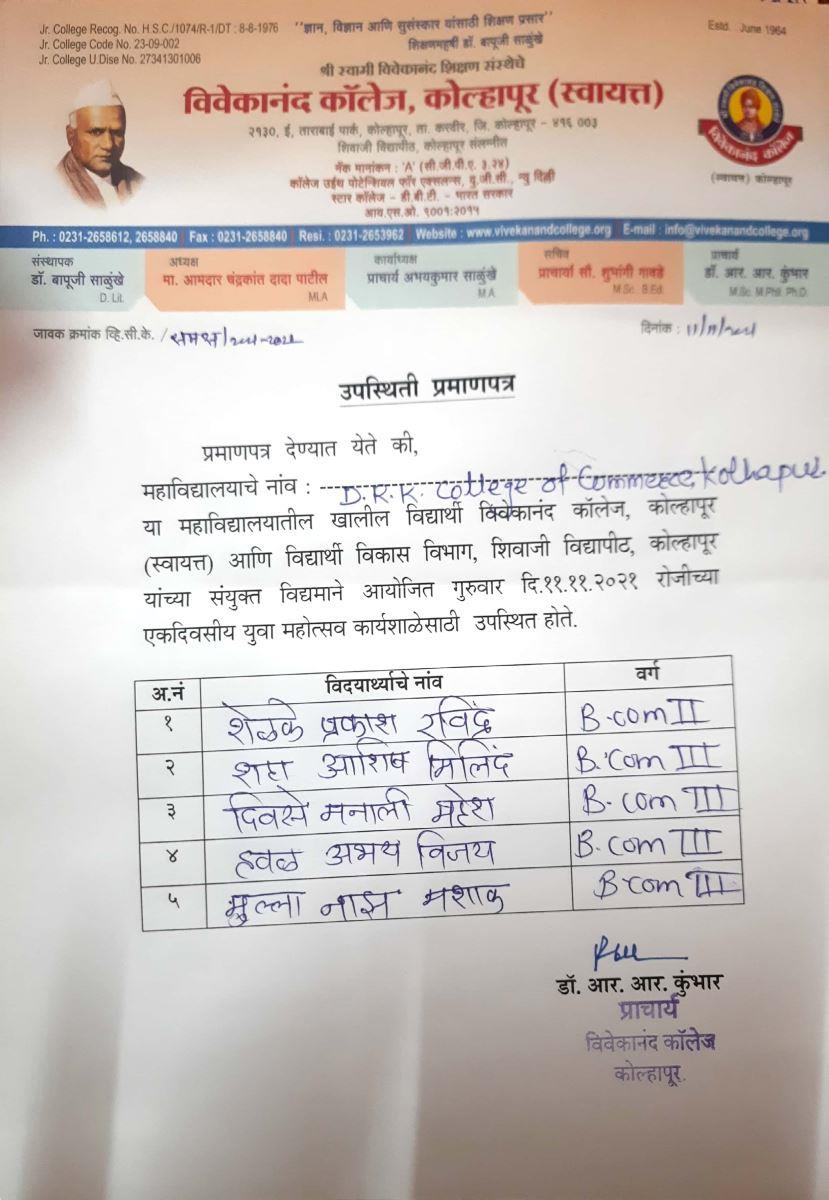 Jr. College Recog. No. H.S.C./1074/R-1/DT : 8-8-1976
Jr. College Code No. 23-09-002
Jr. College U.Dise No. 27341301006
"ज्ञान, विज्ञान आणि सुसंस्कार यांसाठी शिक्षण प्रसार"
शिक्षणमहर्षी डॉ. बापूजी साळुंखे
Estd. June 1964
श्री स्वामी विवेकानंद शिक्षण संस्थेचे
विवेकानंद कॉलेज, कोल्हापूर (स्वायत्त)
२१३०, ई, ताराबाई पार्क, कोल्हापूर, ता. करवीर, जि. कोल्हापूर - ४१६ ००३
शिवाजी विद्यापीठ, कोल्हापूर संलग्नीत
नॅक मानांकन : 'A' (सी.जी.पी.ए. ३.२४)
कॉलेज उईथ पोटेन्शियल फॉर एक्सलन्स, यु.जी.सी., न्यु दिल्ली
स्टार कॉलेज - डी.बी.टी. - भारत सरकार
आय.एस.ओ. ९००१:२०१५
विवेकानंद कॉलेज
(स्वायत्त) कोल्हापूर
Ph. : 0231-2658612, 2658840 Fax : 0231-2658840 Resi. : 0231-2653962 Website : www.vivekanandcollege.org E-mail : info@vivekanandcollege.org
संस्थापक
डॉ. बापूजी साळुंखे
D. Lit.
अध्यक्ष
मा. आमदार चंद्रकांत दादा पाटील
MLA
कार्याध्यक्ष
प्राचार्य अभयकुमार साळुंखे
M.A.
सचिव
प्राचार्या सौ. शुभांगी गावडे
M.Sc. B.Ed.
प्राचार्य
डॉ. आर. आर. कुंभार
M.Sc. M.Phil. Ph.D.
जावक क्रमांक व्हि.सी.के. / /२०२१-२०२२
दिनांक : ११/११/२०२१
उपस्थिती प्रमाणपत्र
प्रमाणपत्र देण्यात येते की,
महाविद्यालयाचे नांव : D.R.K. College of Commerce, Kolhapur.
या महाविद्यालयातील खालील विद्यार्थी विवेकानंद कॉलेज, कोल्हापूर
(स्वायत्त) आणि विद्यार्थी विकास विभाग, शिवाजी विद्यापीठ, कोल्हापूर
यांच्या संयुक्त विद्यमाने आयोजित गुरुवार दि.११.११.२०२१ रोजीच्या
एकदिवसीय युवा महोत्सव कार्यशाळेसाठी उपस्थित होते.
अ.नं विदयार्थ्याचे नांव वर्ग
१ शेळके प्रकाश रविंद्र B.com II
२ शहा आशिष मिलिंद B.Com III
३ दिवसे मनाली महेश B.com III
४ हवळ अभय विजय B.com III
५ मुल्ला नाझ मशाक B.com III
डॉ. आर. आर. कुंभार
प्राचार्य
विवेकानंद कॉलेज
कोल्हापूर.